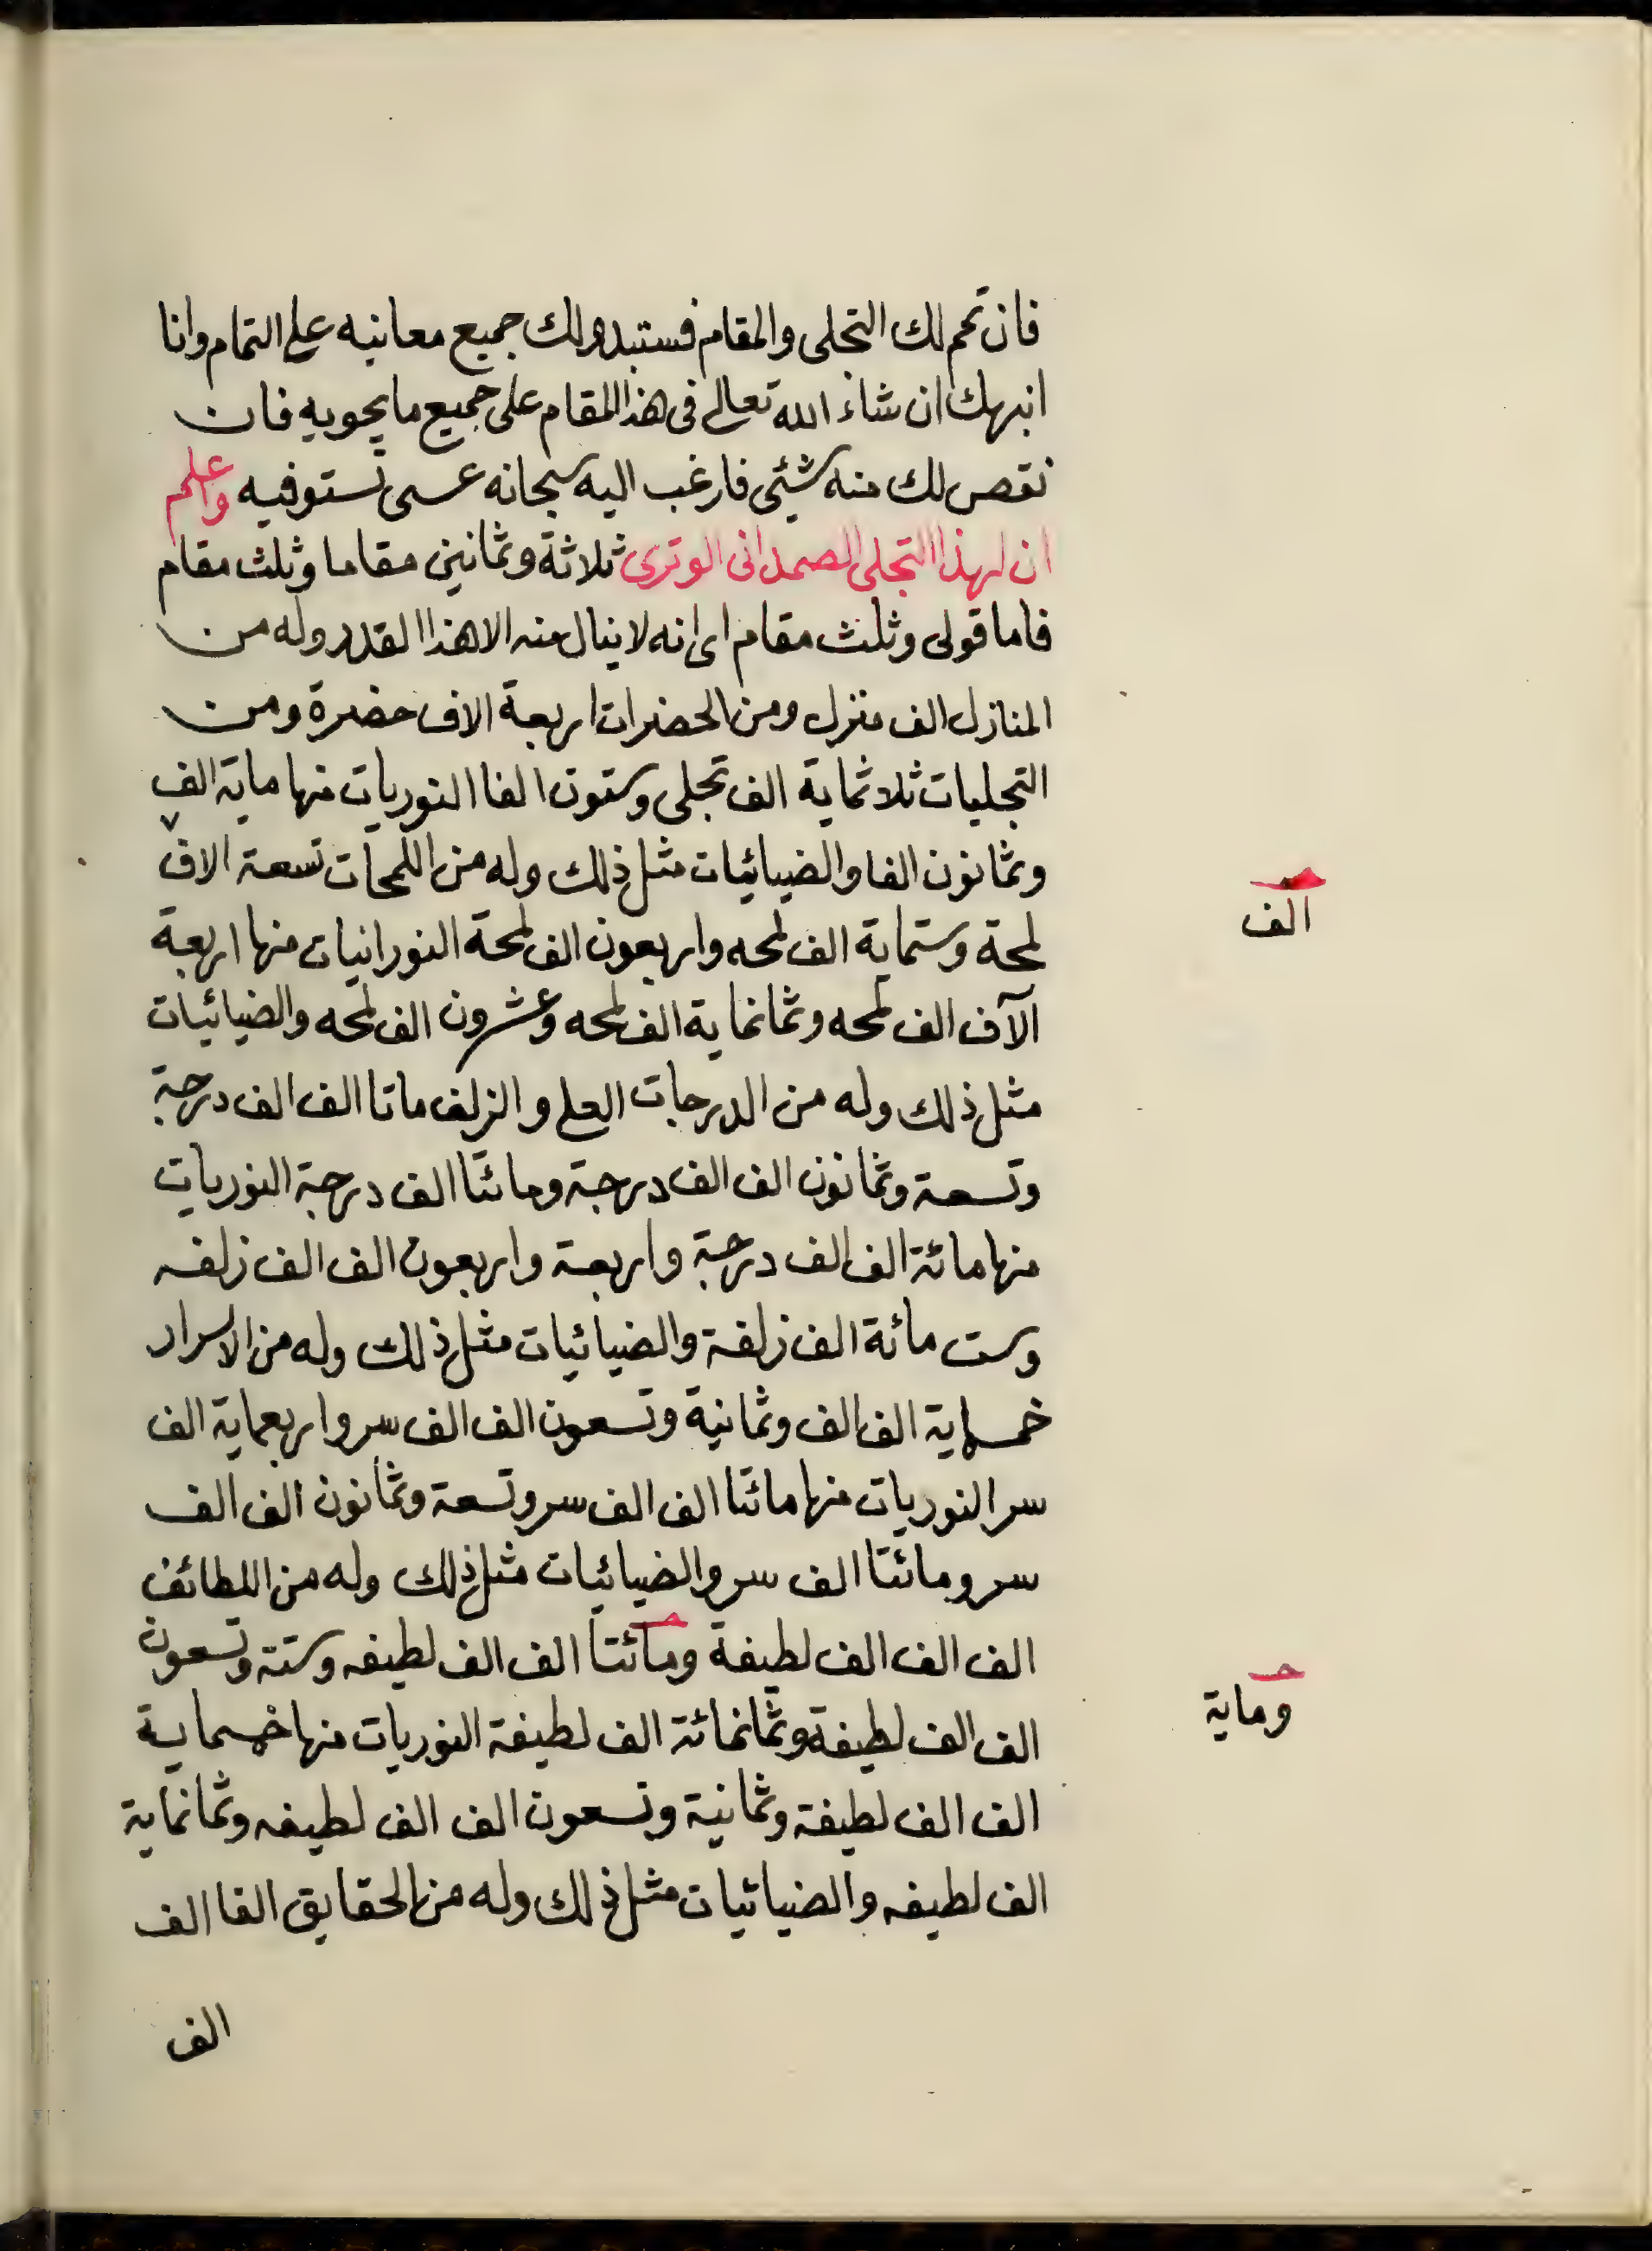 فان تمم لك التجلى والمقام فستبدو لك جميع معانيه على التمام وانا
انبهك ان شاء الله تعالى فى هذا المقام على جميع ما يحويه فان
نقص لك منه شئى فارغب اليه سبحانه عسى تستوفيه واعلم
ان لهذا التجلى الصمدانى الوترى ثلاثة وثمانين مقاما وثلث مقام
فاما قولى وثلث مقام اى انه لا ينال منه الا هذا القدر وله من
المنازل الف منزل ومن الحضرات اربعة الاف حضرة ومن
التجليات ثلاثماية الف تجلى وستون الفا النوريات منها ماية الف
وثمانون الفا والضيائيات مثل ذلك وله من اللمحات تسعة الاف
الف
لمحة وستماية الف لمحه واربعون الف لمحة النورانيات منها اربعة
الآف الف لمحه وثمانماية الف لمحه وعشرون الف لمحه والضيائيات
مثل ذلك وله من الدرجات العلى والزلف ماتا الف الف درجة
وتسعة وثمانون الف الف درجة ومائتا الف درجة النوريات
منها مائة الف الف درجة واربعة واربعون الف الف زلفه
وست مائة الف زلفة والضيائيات مثل ذلك وله من الاسرار
خمسماية الف الف وثمانية وتسعون الف الف سر واربعماية الف
سر النوريات منها مائتا الف الف سر وتسعة وثمانون الف الف
سر ومائتا الف سر والضيائيات مثل ذلك وله من اللطائف
الف الف الف لطيفة ومائتا الف الف لطيفه وستة وتسعون
وماية
الف الف لطيفة وثمانمائة الف لطيفة النوريات منها خمسماية
الف الف لطيفة وثمانية وتسعون الف الف لطيفه وثمانماية
الف لطيفه والضيائيات مثل ذلك وله من الحقايق الفا الف
الف